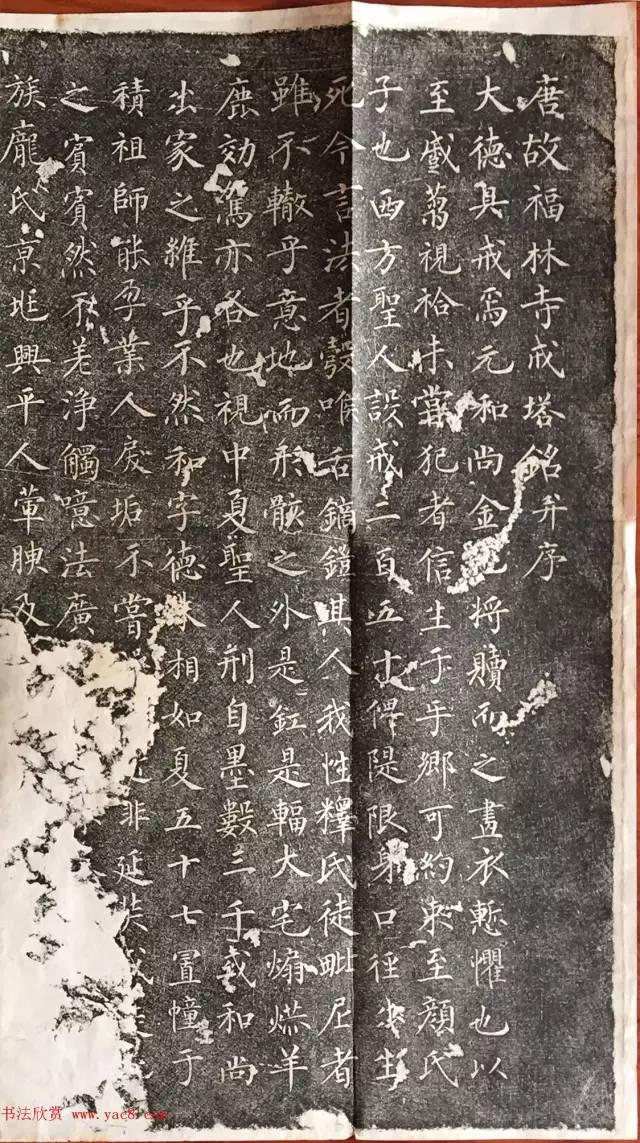 唐故福林寺戒塔銘并序
大德具戒焉元和尚金 將贖而之畫衣慙懼也以
至戲蒭視袷未嘗犯者信生于乎鄉可約束至顏氏
子也西方聖人設戒二百五十俾隄限身口徑 生
死令言法者轂喉舌鏑鎧其人我性釋氏徒毗尼者
雖不轍乎意地而形骸之外是釭是輻大宅煽 羊
鹿効駕亦各也視中夏聖人刑自墨數三千戒和尚
出家之雄乎不然和字德 相如夏五十七置幢于
積祖師能孕業人戾垢不嘗 非延
之賓賓然不羌淨觸噫法廣
族龐氏京兆興平人葷腴及
书法欣赏 www.yac8.com